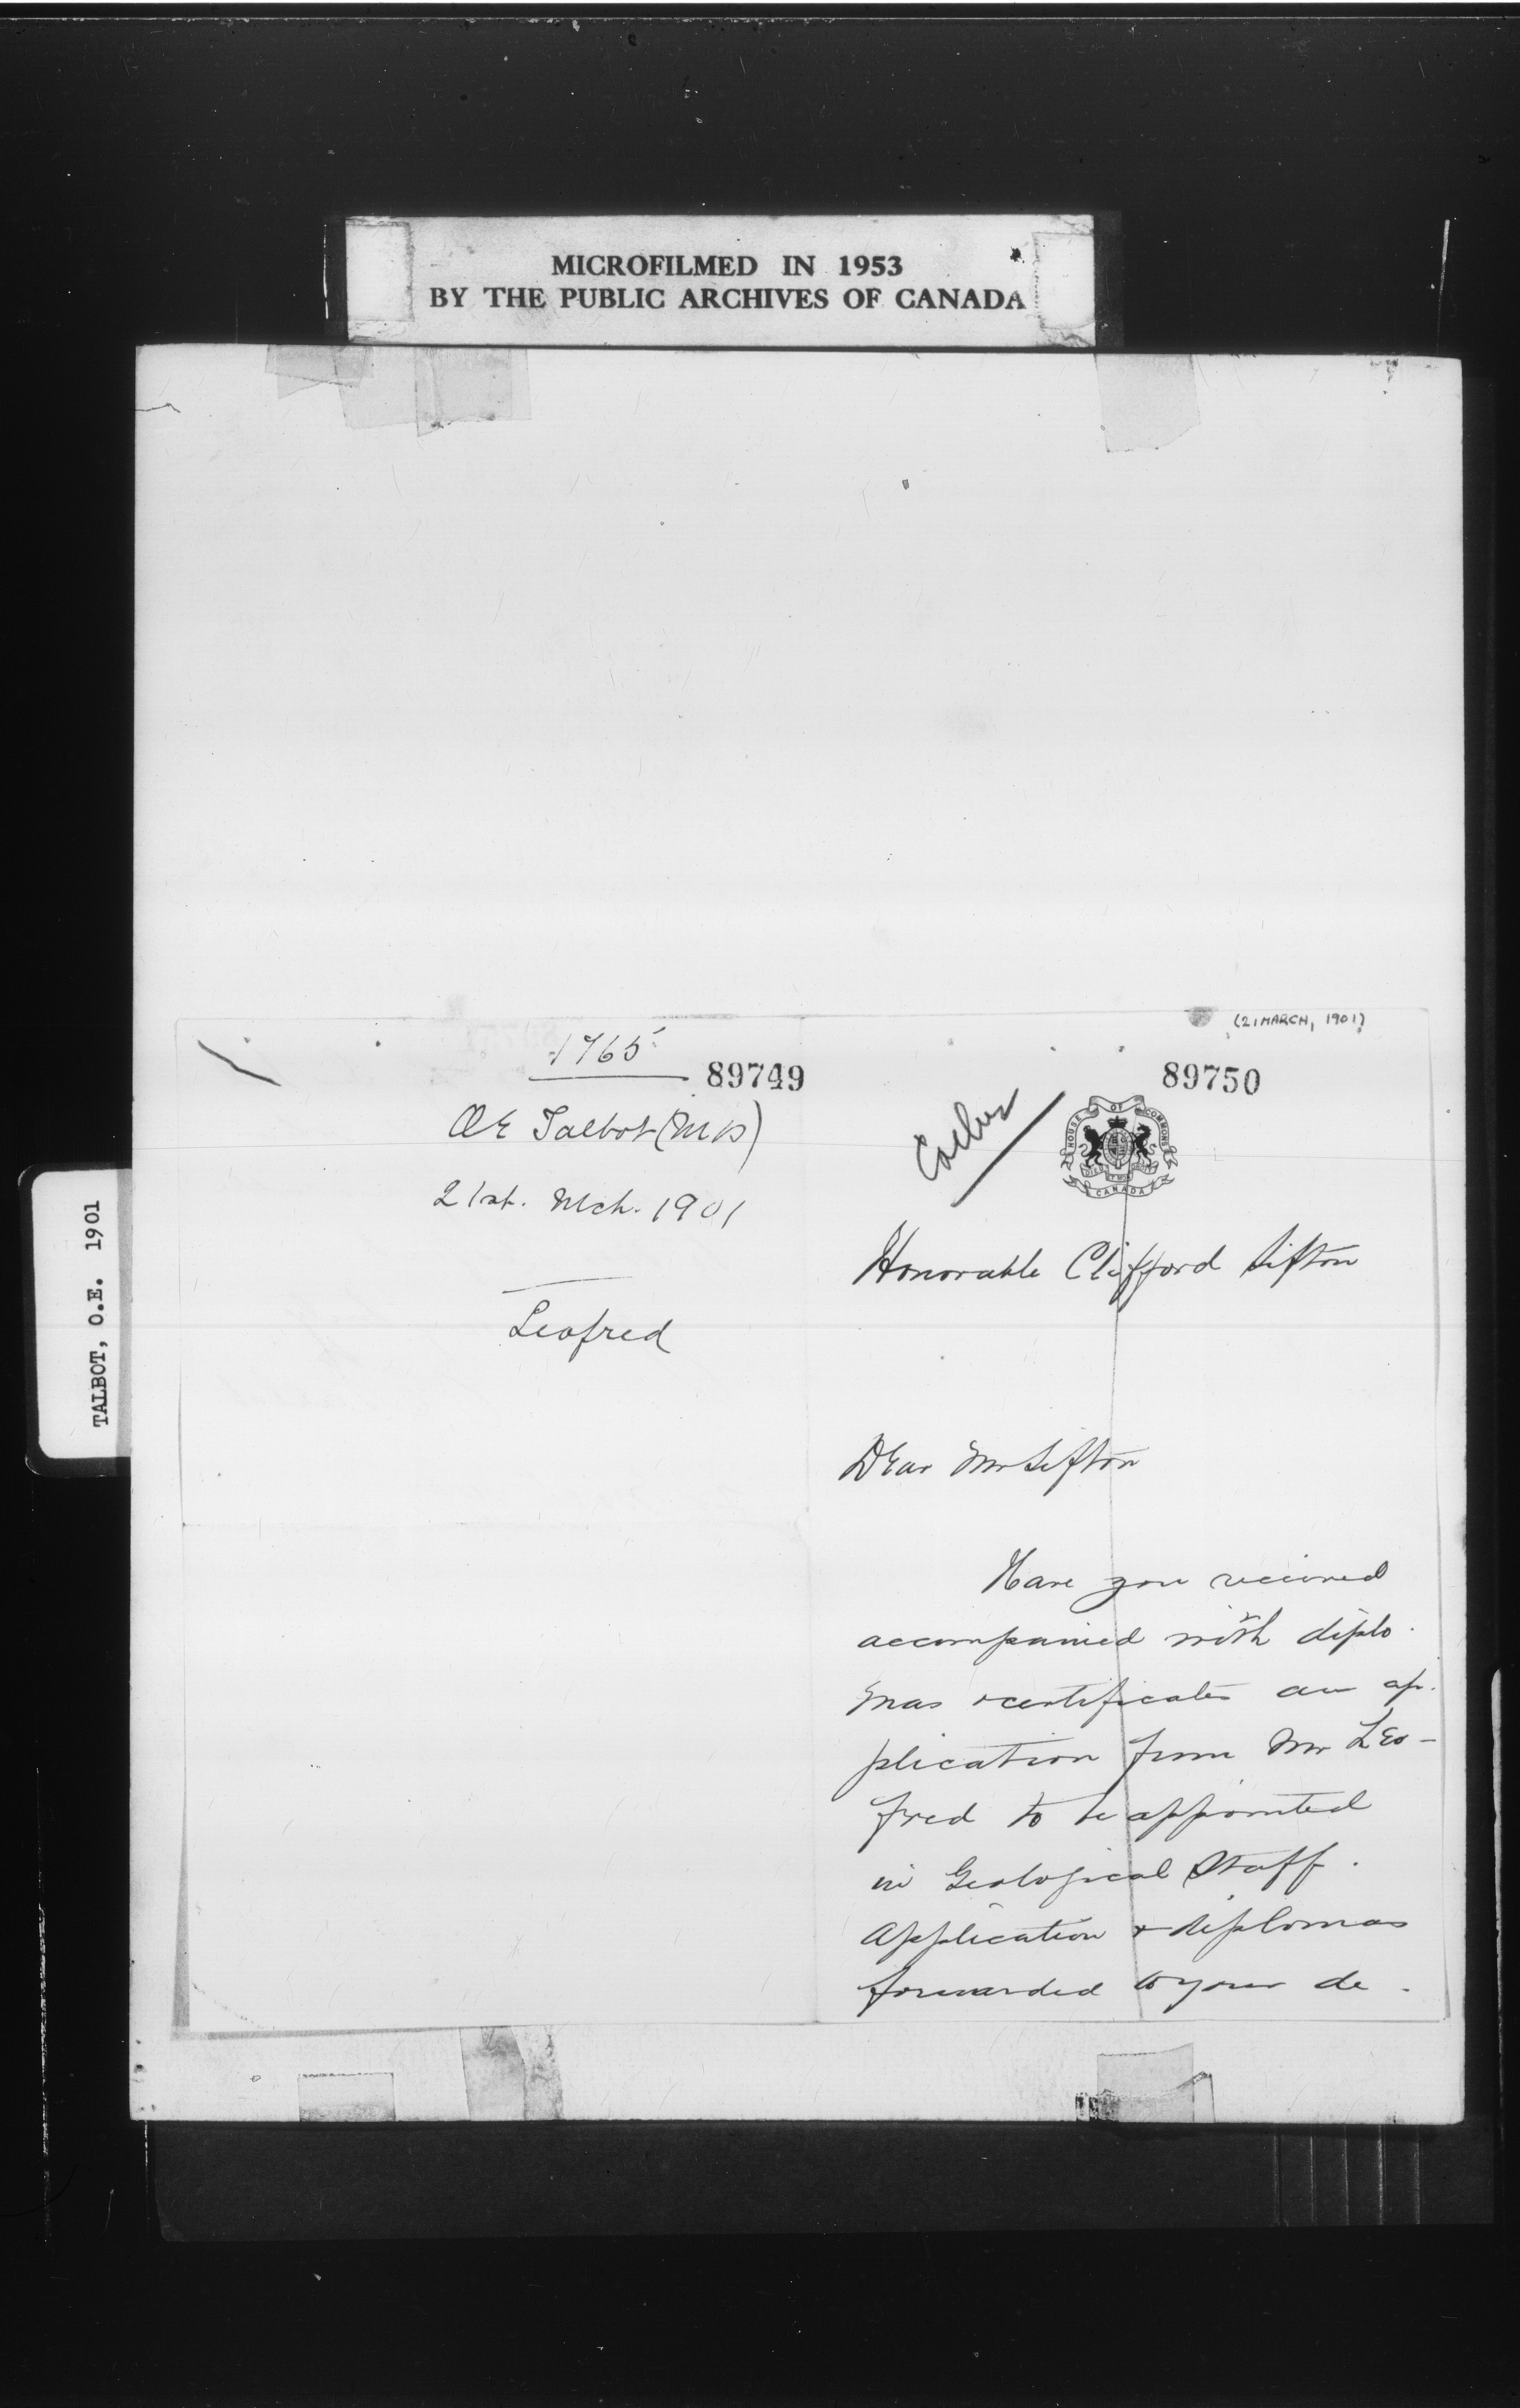 MICROFILMED IN 1953
BY THE PUBLIC ARCHIVES OF CANADA
TALBOT, O.E. 1901
1765
89749
OE Talbot (MP)
21st. Mch. 1901
Leofred
(21 MARCH, 1901)
89750
HOUSE OF COMMONS
CANADA
Honorable Clifford Sifton
Dear Mr Sifton
Have you received
accompanied with diplo-
mas & certificates an ap-
plication from Mr Leo-
fred to be appointed
in Geological Staff.
Application & diplomas
forwarded to your de-